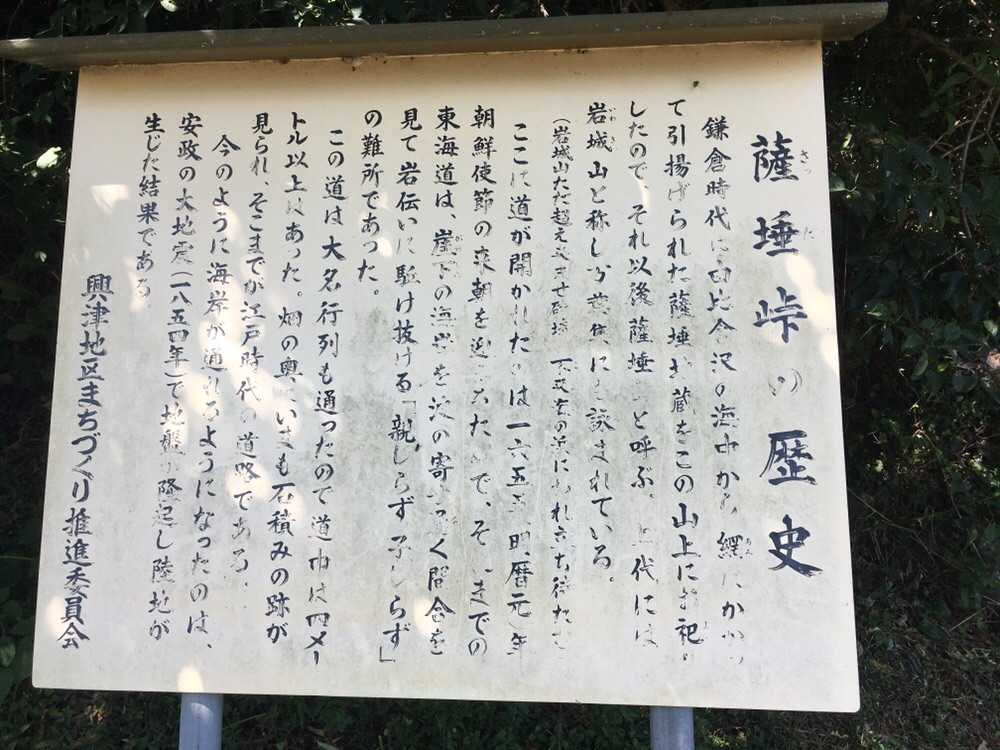 薩埵峠の歴史
鎌倉時代に由比倉沢の海中から網にかかっ
て引揚げられた薩埵地蔵をこの山上にお祀り
したので、それ以後薩埵 と呼ぶ。上代には
岩城山と称し万葉集にも詠まれている。
(岩城山ただ超え来ませ磯埼 不来海の浜にわれ立ち待たむ
ここに道が開かれたのは一六五五 明暦元 年
朝鮮使節の来朝を迎えたためで、そ までの
東海道は、崖下の海岸を波の寄せ引く間合を
見て岩伝いに駈け抜ける「親しらず子しらず」
の難所であった。
この道は大名行列も通ったので道巾は四メー
トル以上はあった。畑の奥にいまも石積みの跡が
見られ、そこまでが江戸時代の道路である。
今のように海岸が通れるようになったのは、
安政の大地震(一八五四年)で地盤が隆起し陸地が
生じた結果である。
興津地区まちづくり推進委員会